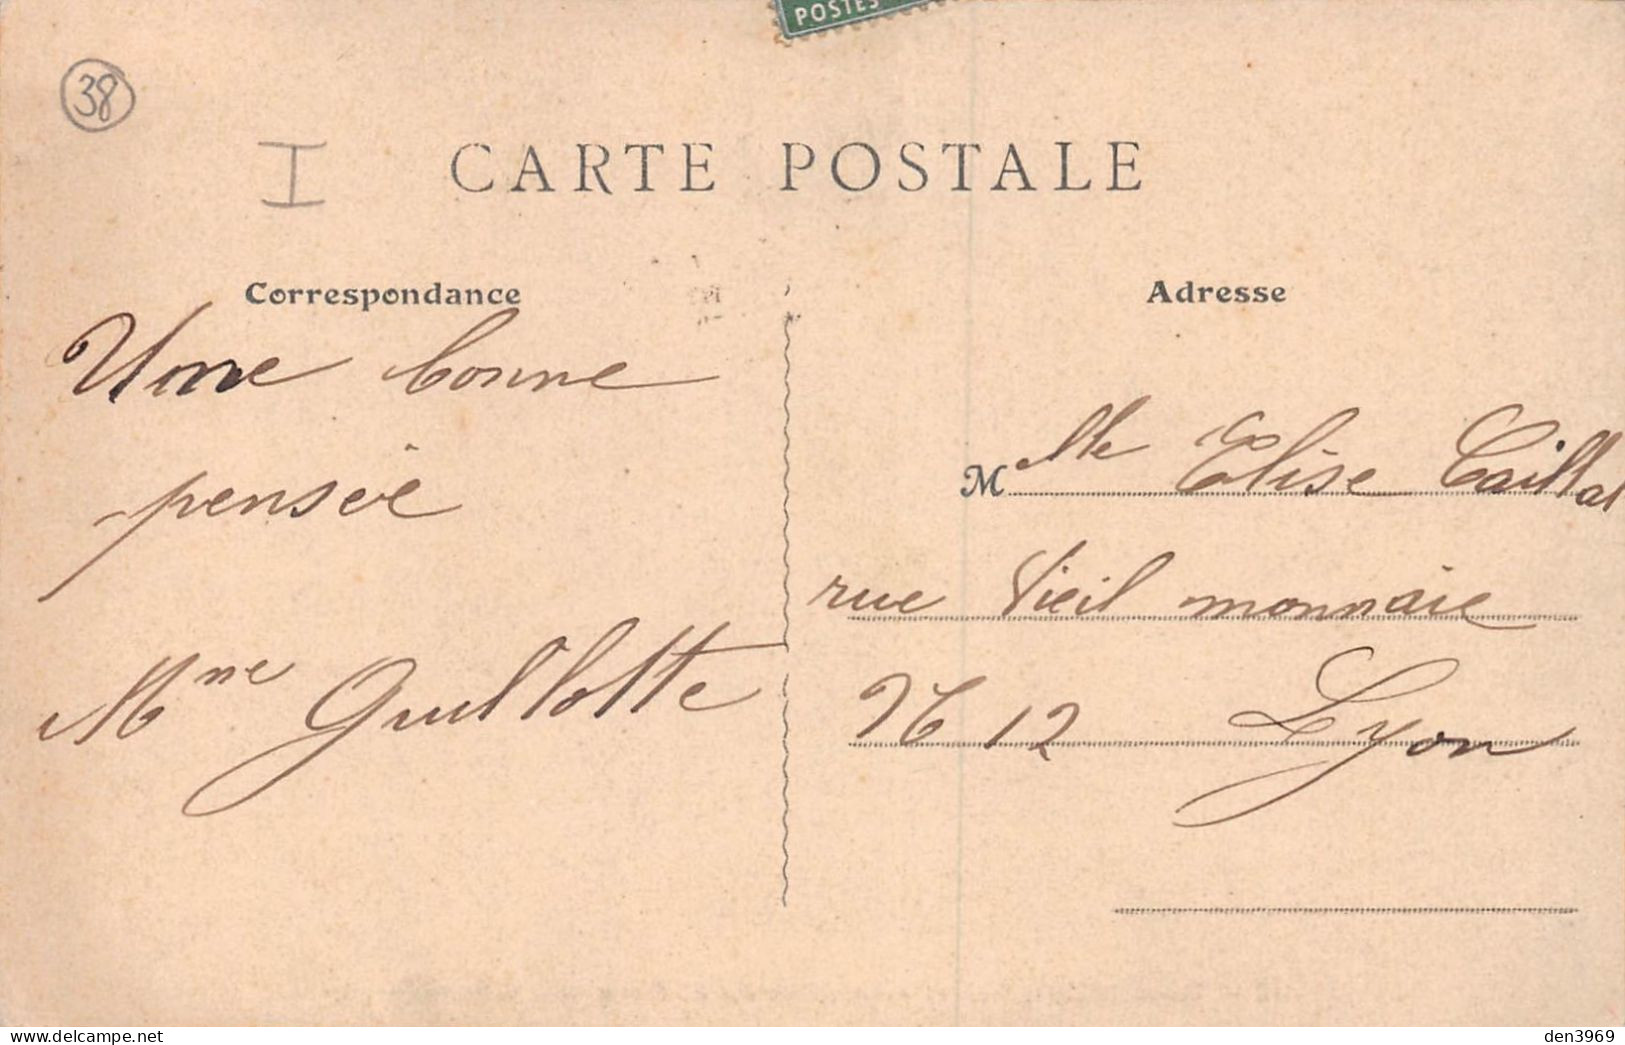 POSTES
38
I
CARTE POSTALE
Correspondance
Adresse
Une bonne
pensée
Mme Guillotte
Melle Elise Caillat
rue Vieil monnaie
N 12 Lyon
den3969